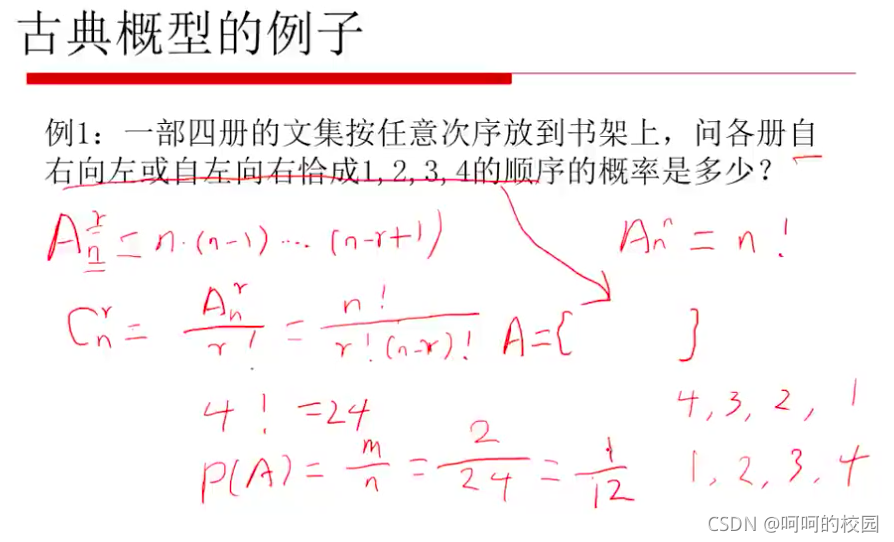 古典概型的例子
例1：一部四册的文集按任意次序放到书架上，问各册自
右向左或自左向右恰成1,2,3,4的顺序的概率是多少？
A_n^r = n·(n-1)····(n-r+1)
A_n^n = n!
C_n^r = A_n^r / r! = n! / r!(n-r)!
A={ }
4! =24
4, 3, 2, 1
P(A) = m/n = 2/24 = 1/12
1, 2, 3, 4
CSDN @呵呵的校园